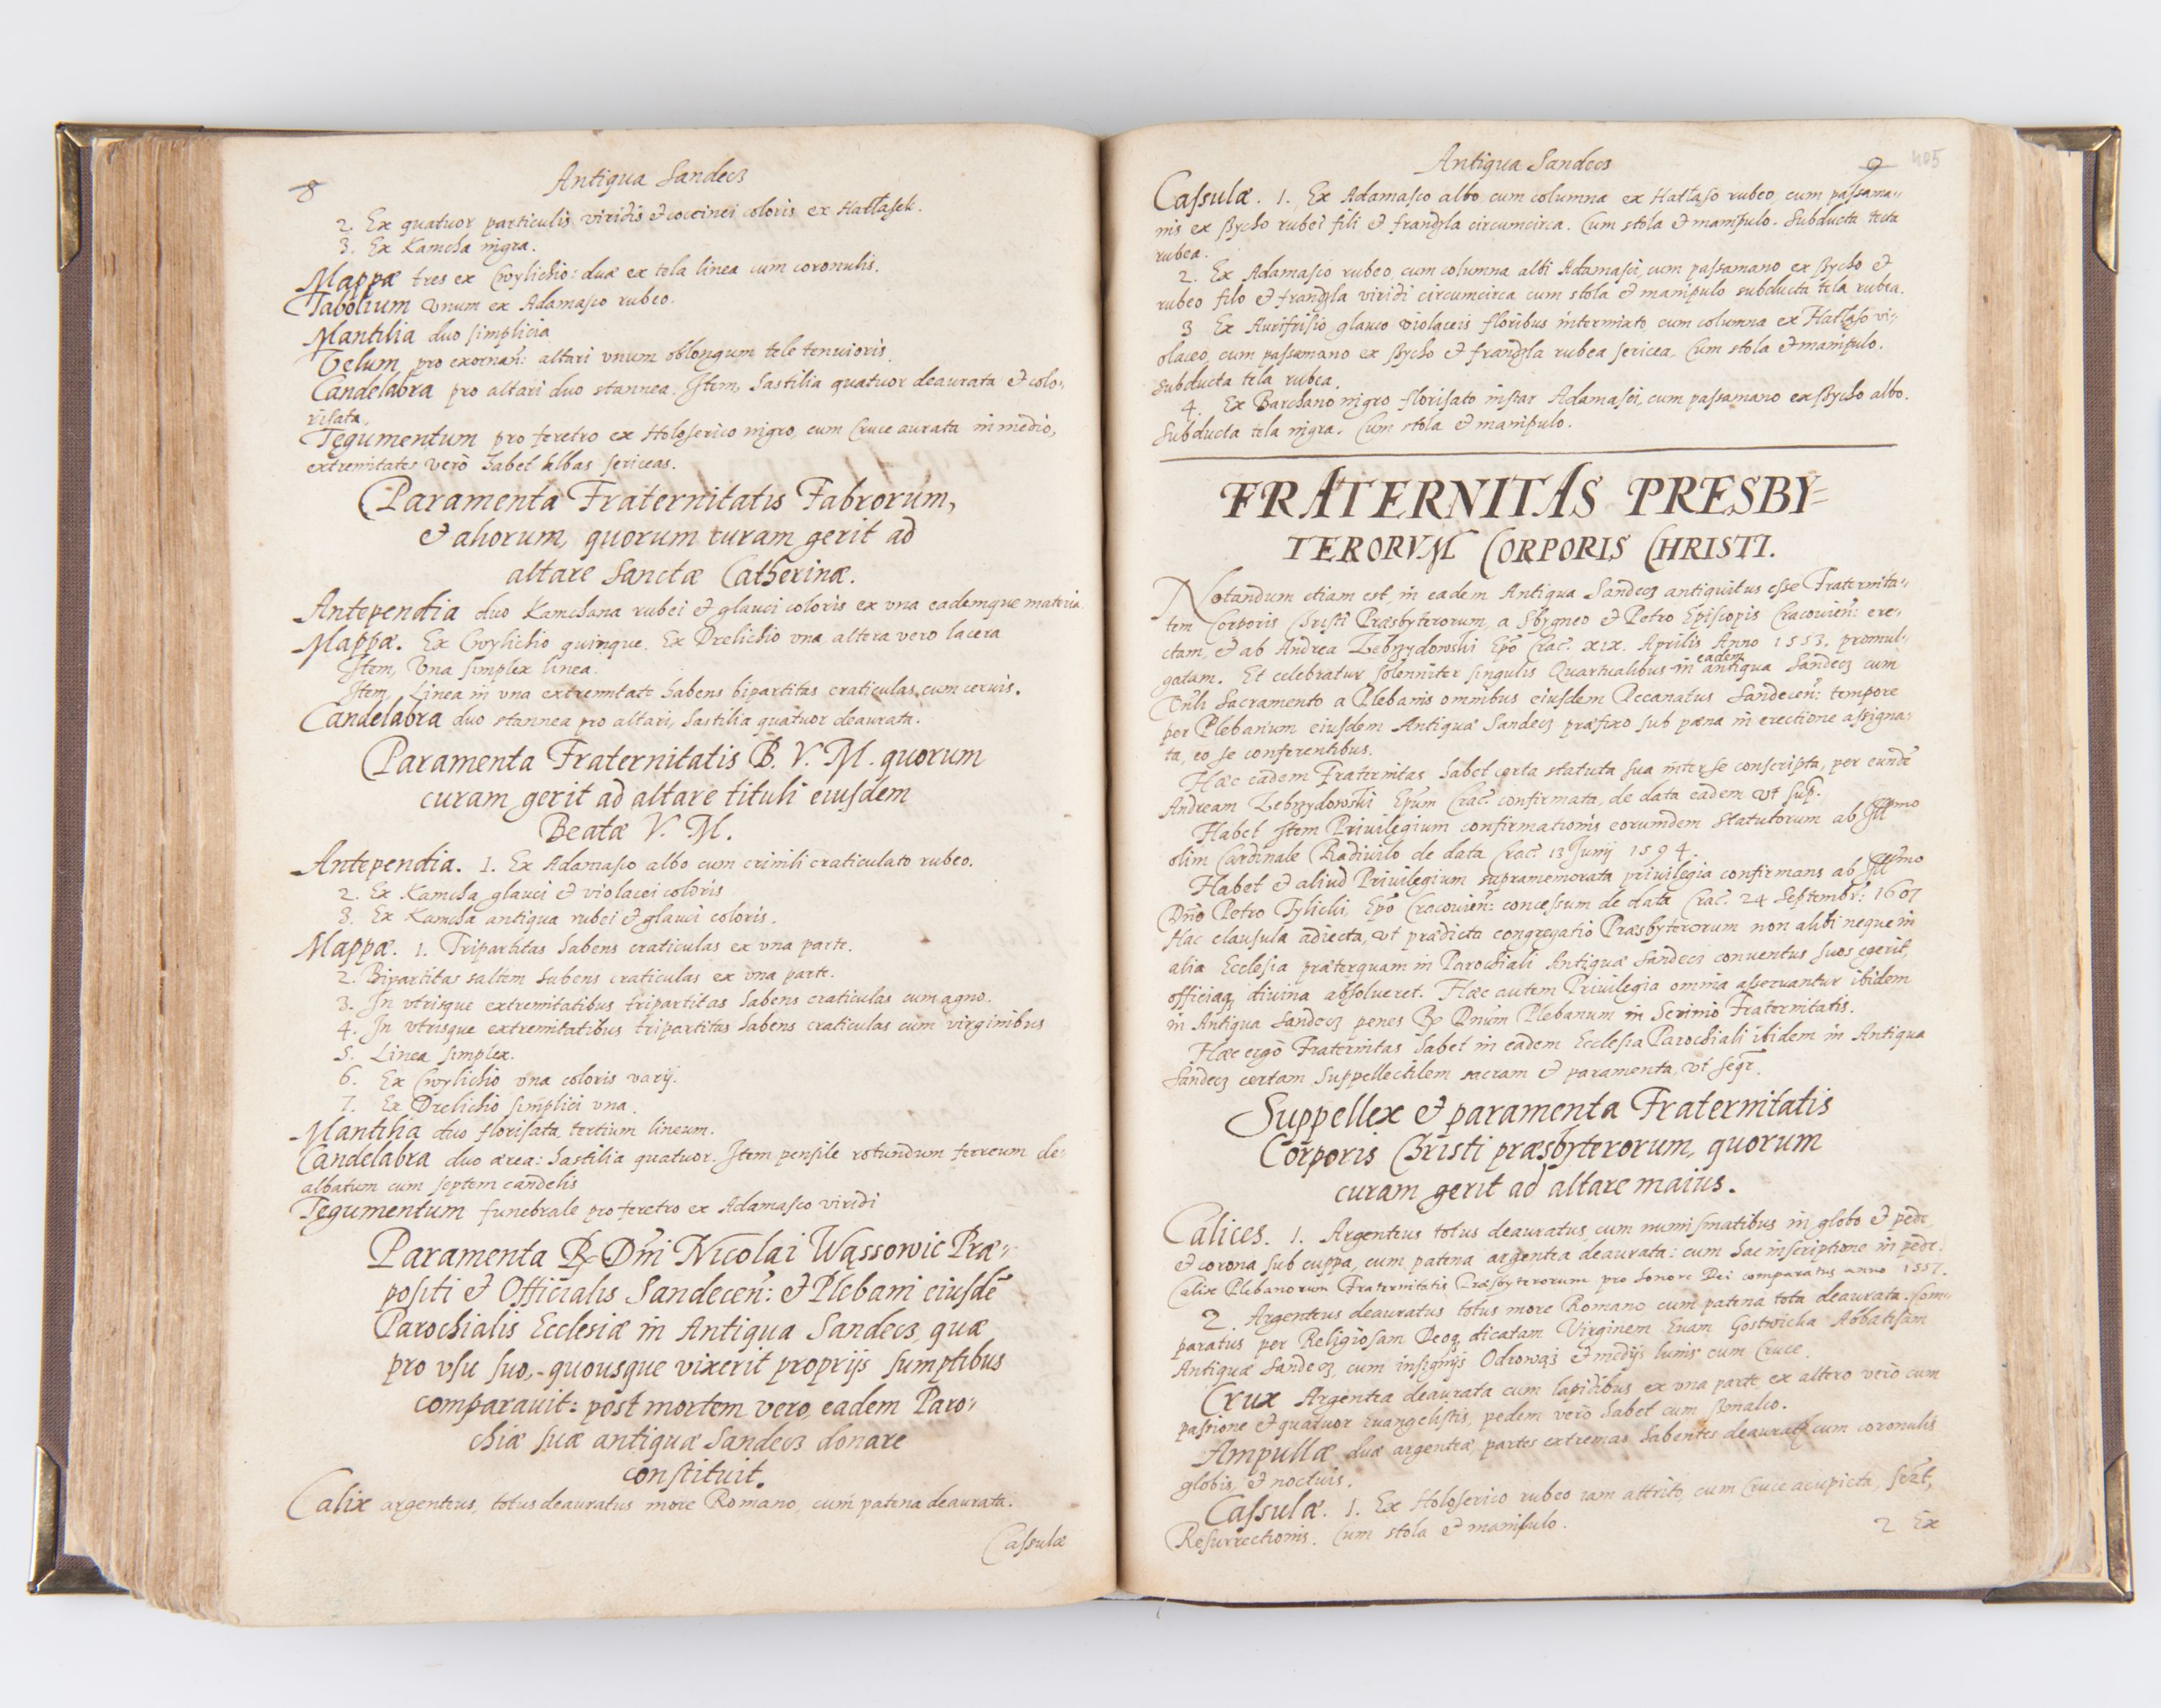 8
Antiqua Sandecz
2. Ex quatuor particulis viridis et coccinei coloris ex Hatłasek.
3. Ex Kamcha nigra.
Mappæ tres ex Cwylichio: duæ ex tela linea cum coronulis.
Tabolium vnum ex Adamasco rubeo.
Mantilia duo simplicia
Velum pro exornan: altari vnum oblongum tele tenuioris.
Candelabra pro altari duo stannea. Item, hastilia quatuor deaurata et colo-
risata.
Tegumentum pro feretro ex Holoserico nigro, cum Cruce aurata in medio,
extremitates verò habet albas sericeas.
Paramenta Fraternitatis Fabrorum,
et aliorum, quorum curam gerit ad
altare Sanctæ Catherinæ.
Antependia duo Kamchana rubei et glauci coloris ex vna eademque materia.
Mappæ. Ex Cwylichio quinque. Ex Drelichio vna, altera vero lacera
Item, Vna simplex linea.
Item, Linea in vna extremitate habens bipartitas craticulas, cum ceruis.
Candelabra duo stannea pro altari, hastilia quatuor deaurata.
Paramenta Fraternitatis B. V. M. quorum
curam gerit ad altare tituli eiusdem
Beatæ V. M.
Antependia. 1. Ex Adamasco albo cum crinili craticulato rubeo.
2. Ex Kamcha glauci et violacei coloris
3. Ex Kamcha antiqua rubei et glauci coloris.
Mappæ. 1. Tripartitas habens craticulas ex vna parte.
2. Bipartitas saltem habens craticulas ex vna parte.
3. In vtrisque extremitatibus tripartitas habens craticulas cum agno.
4. In vtrisque extremitatibus tripartitas habens craticulas cum virginibus
5. Linea simplex.
6. Ex Cwylichio vna coloris varij.
7. Ex Drelichio simplici vna.
Mantilia duo florisata, tertium lineum.
Candelabra duo ærea: hastilia quatuor. Item pensile rotundum ferreum de-
albatum cum septem candelis
Tegumentum funebrale pro feretro ex Adamasco viridi
Paramenta R. Dñi Nicolai Wąssowic Præ-
positi et Officialis Sandeceñ: et Plebani eiusdē
Parochialis Ecclesiæ in Antiqua Sandecz, quæ
pro vsu suo, quousque vixerit proprijs sumptibus
comparauit: post mortem vero, eadem Paro-
chiæ suæ antiquæ Sandecz donare
constituit.
Calix argenteus, totus deauratus more Romano, cum patena deaurata.
Cassulæ
Antiqua Sandecz
9
405
Cassulæ. 1. Ex Adamasco albo cum columna ex Hatłaso rubeo, cum passama-
nis ex szycho rubei fili et frandzla circumcirca. Cum stola et manipulo. Subducta tela
rubea.
2. Ex Adamasco rubeo, cum columna albi Adamasci, cum passamano ex szycho et
rubeo filo et frandzla viridi circumcirca cum stola et manipulo subducta tela rubea.
3 Ex Aurifrisio, glauco violaceis floribus intermixto, cum columna ex Hatłaso vi-
olaceo, cum passamano ex szycho et frandzla rubea sericea. Cum stola et manipulo.
Subducta tela rubea.
4. Ex Barchano nigro florisato instar Adamasci, cum passamano ex szycho albo.
Subducta tela nigra. Cum stola et manipulo.
FRATERNITAS PRESBY-
TERORVM CORPORIS CHRISTI.
Notandum etiam est, in eadem Antiqua Sandecz antiquitus esse Fraternita-
tem Corporis Christi Præsbyterorum, a Sbygneo et Petro Episcopis Cracouieñ: ere-
ctam, et ab Andrea Zebrzydowski Epo Crac. XIX. Aprilis Anno 1553. promul-
gatam. Et celebratur solenniter singulis Quartualibus in eadem antiqua Sandecz cum
Vnli Sacramento a Plebanis omnibus eiusdem Decanatus Sandeceñ: tempore
per Plebanum eiusdem Antiquæ Sandecz præfixo sub pœna in erectione assigna-
ta, eo se conferentibus.
Hæc eadem Fraternitas habet certa statuta sua inter se conscripta, per eundē
Andream Zebrzydowski Epum Crac. confirmata, de data eadem vt sup.
Habet Item Priuilegium confirmationis eorumdem statutorum ab Illmo
olim Cardinale Radiuilo de data Crac. 13 Junij 1594.
Habet et aliud Priuilegium supramemorata priuilegia confirmans ab Illmo
Dño Petro Tylicki, Epo Cracouieñ: concessum de data Crac. 24 Septembr: 1607
Hac clausula adiecta, vt prædicta congregatio Præsbyterorum non alibi neque in
alia Ecclesia præterquam in Parochiali Antiquæ Sandecz conuentus suos egerit,
officiaq; diuina absolueret. Hæc autem Priuilegia omnia asseruantur ibidem
in Antiqua Sandecz penes R. Dnum Plebanum in Scrinio Fraternitatis.
Hæc ergò Fraternitas habet in eadem Ecclesia Parochiali ibidem in Antiqua
Sandecz certam suppellectilem sacram et paramenta, vt seqr.
Suppellex et paramenta Fraternitatis
Corporis Christi præsbyterorum, quorum
curam gerit ad altare maius.
Calices. 1. Argenteus totus deauratus, cum numismatibus in globo et pede
et corona sub cuppa, cum patena argentea deaurata: cum hac inscriptione in pede.
Calix Plebanorum Fraternitatis Præsbyterorum pro honore Dei comparatus anno 1557.
2. Argenteus deauratus totus more Romano cum patena tota deaurata. Com-
paratus per Religiosam Deoq; dicatam Virginem Euam Gostwicka Abbatissam
Antiquæ Sandecz, cum insignijs Odrowąz et medijs lunis cum Cruce.
Crux Argentea deaurata cum lapidibus ex vna parte, ex altero verò cum
passione et quatuor Euangelistis, pedem verò habet cum szmalco.
Ampullæ duæ argenteæ, partes extremas habentes deauratas cum coronulis
globis, et noctuis.
Cassulæ. 1. Ex Holoserico rubeo iam attrito, cum Cruce acupicta,
Resurrectionis. Cum stola et manipulo.
2 Ex